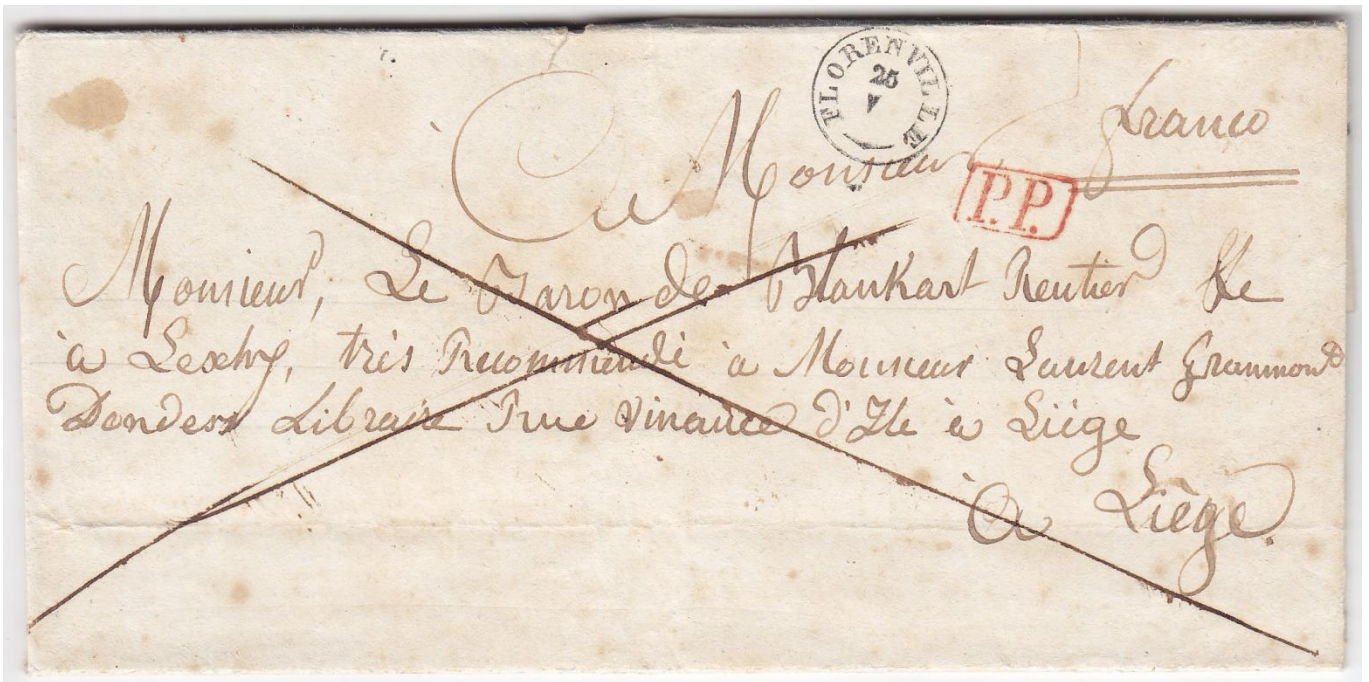 FLORENVILLE
25
V
franco
à Monsieur
P.P.
Monsieur, Le Baron de Blankart Rentier
à Lexhy, très Recommendé à Monsieur Laurent Grammont
Donders Libraire Rue vinauve d'Ile à Liége
à Liège.